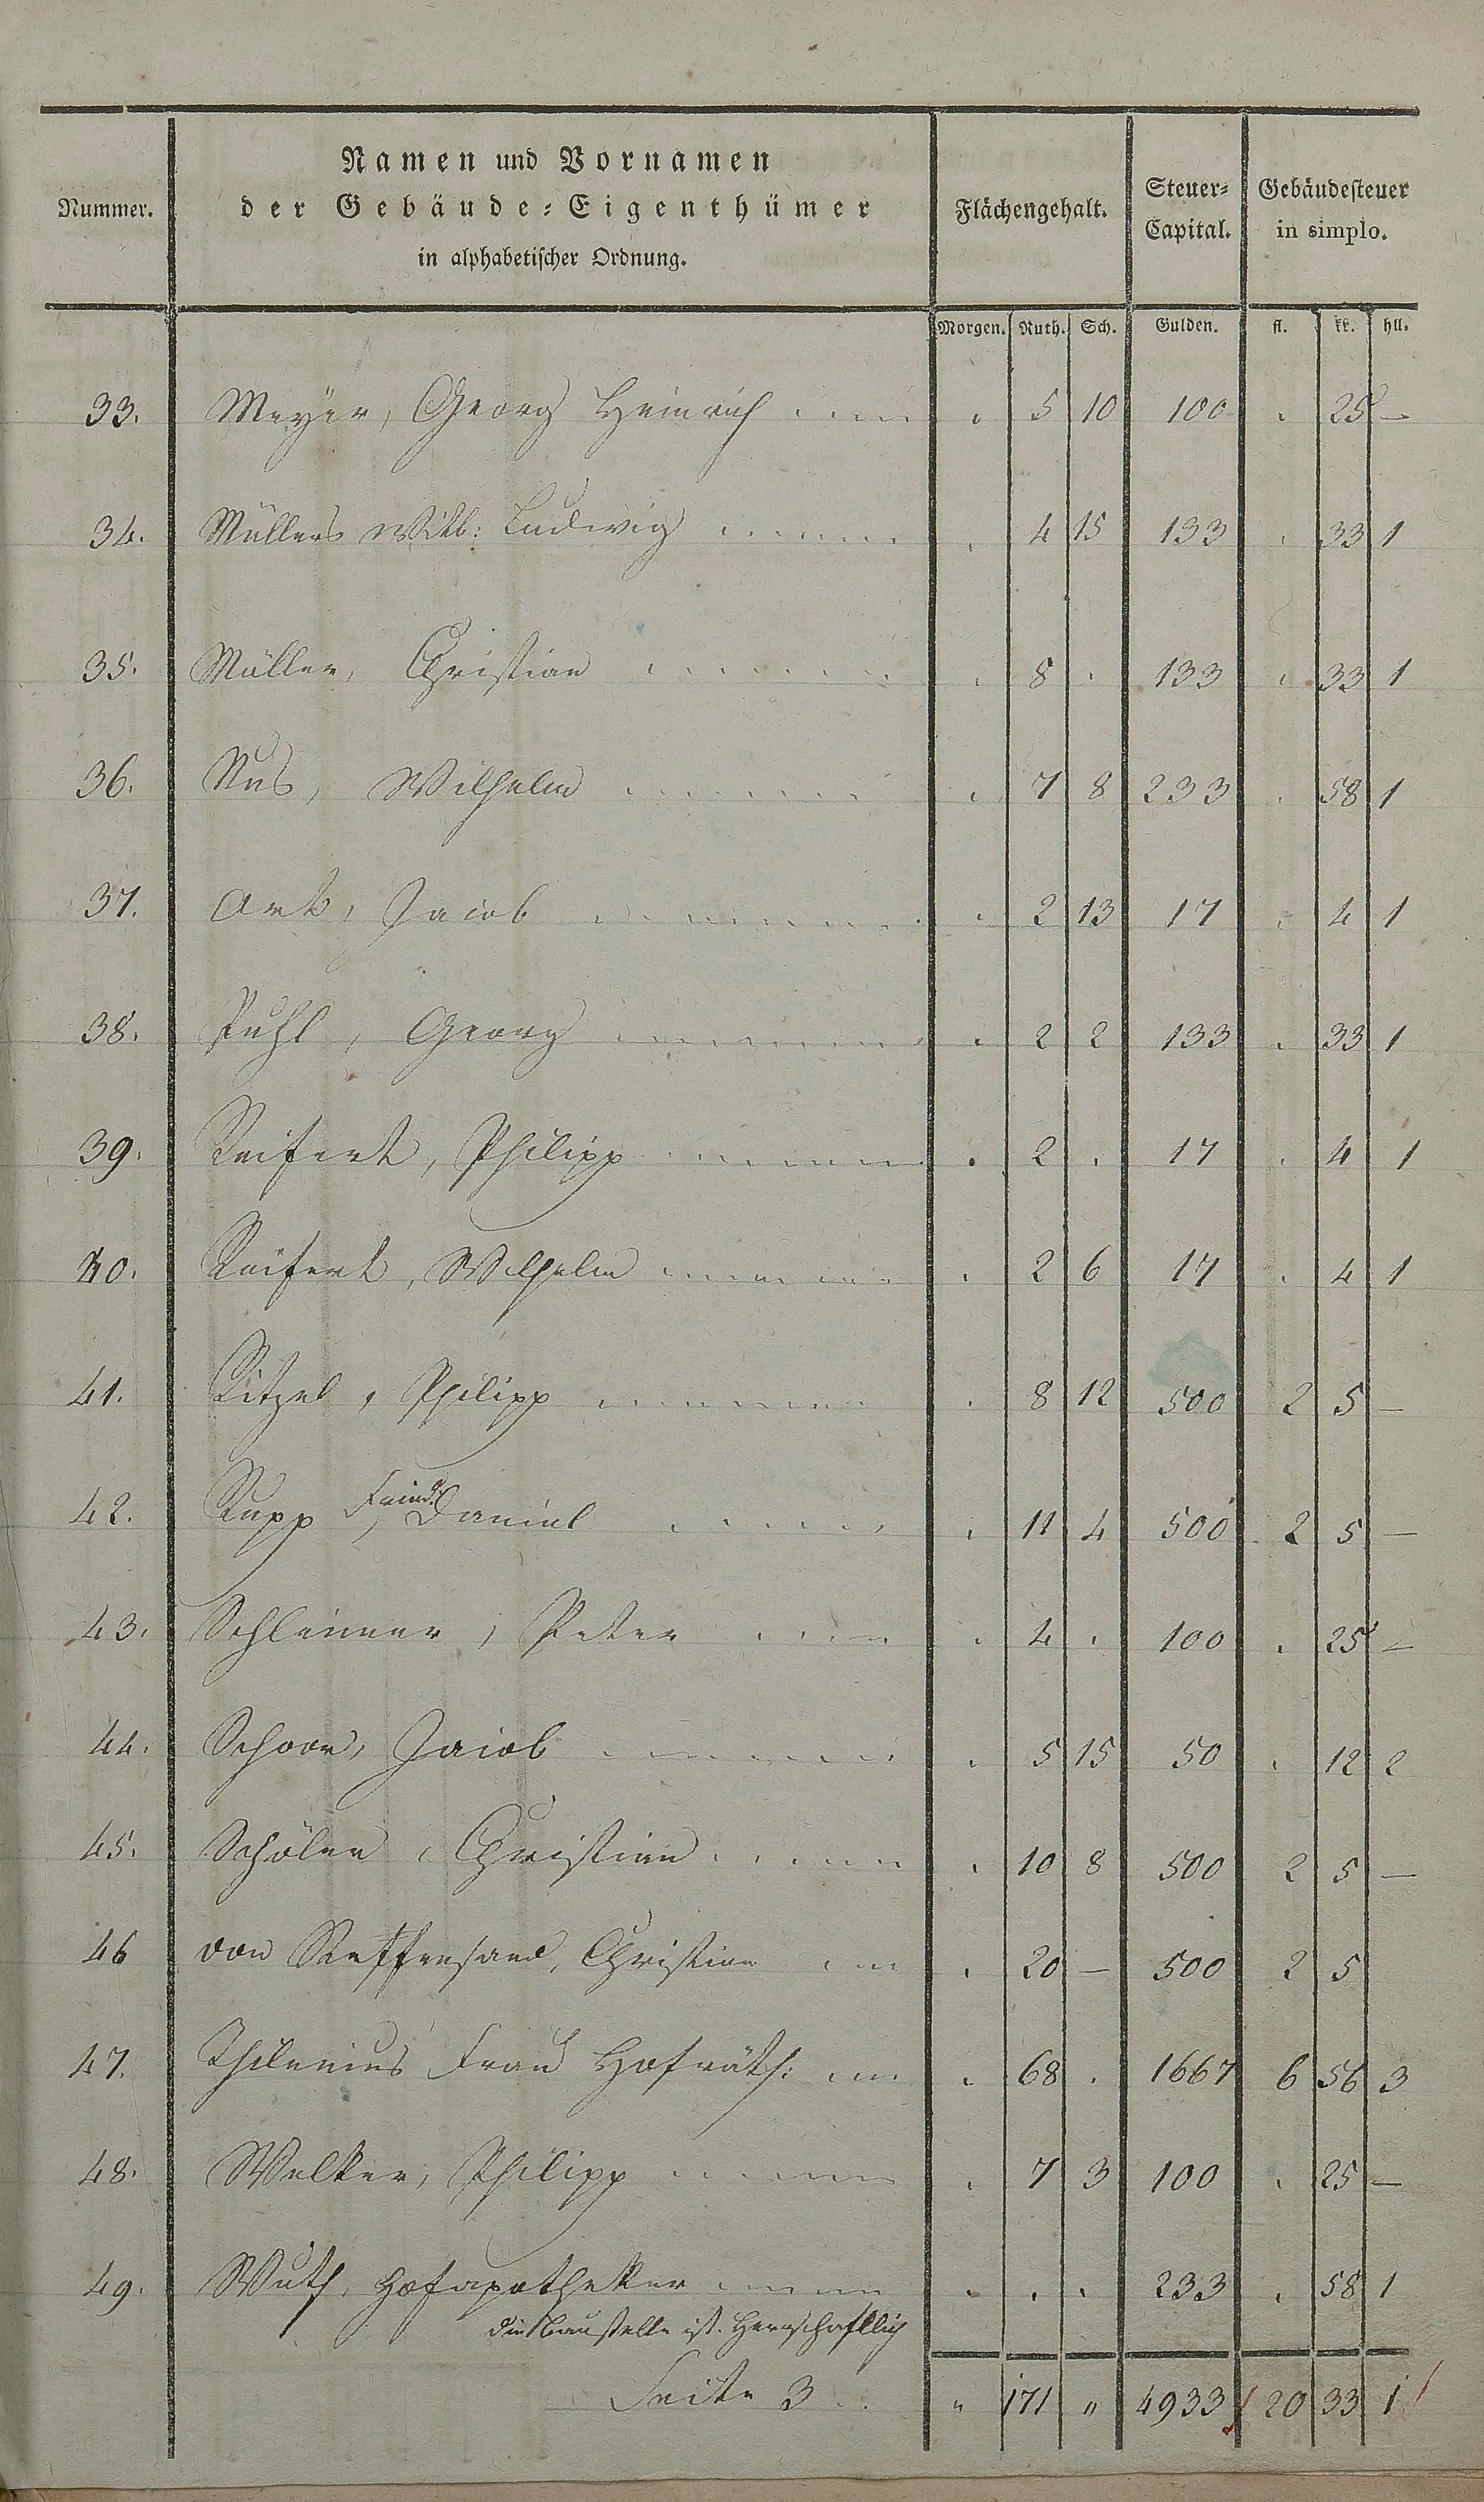 Namen und Vornamen
der Gebäude-Eigenthümer
in alphabetischer Ordnung.
Nummer.
Flächengehalt.
Steuer-
Capital.
Gebäudesteuer
in simplo.
Morgen. Ruth. Sch. Gulden. fl. kr. hll.
33. Meyer, Georg Heinrich . 5 10 100 . 25 —
34. Müllers Witb: Ludwig . 4 15 133 . 33 1
35. Müller, Christian . 8 . 133 . 33 1
36. Nus, Wilhelm . 7 8 233 . 58 1
37. Ort, Jacob . 2 13 17 . 4 1
38. Puhl, Georg . 2 2 133 . 33 1
39. Reifert, Philipp . 2 . 17 . 4 1
40. Reifert, Wilhelm . 2 6 17 . 4 1
41. Ritzel, Philipp . 8 12 500 2 5 —
42. Rupp, Daniel . 11 4 500 2 5 —
43. Schleimer, Peter . 4 . 100 . 25 —
44. Schoor, Jacob . 5 15 50 . 12 2
45. Schöler, Christian . 10 8 500 2 5 —
46 von Steffensand, Christian . 20 — 500 2 5
47. Thilenius Frau Hofräth: . 68 . 1667 6 56 3
48. Welker, Philipp . 7 3 100 . 25 —
49. Wuth, Hofapotheker . . . 233 . 58 1
die Baustelle ist Herrschaftlich
Seite 3 . . " 171 " 4933 20 33 1